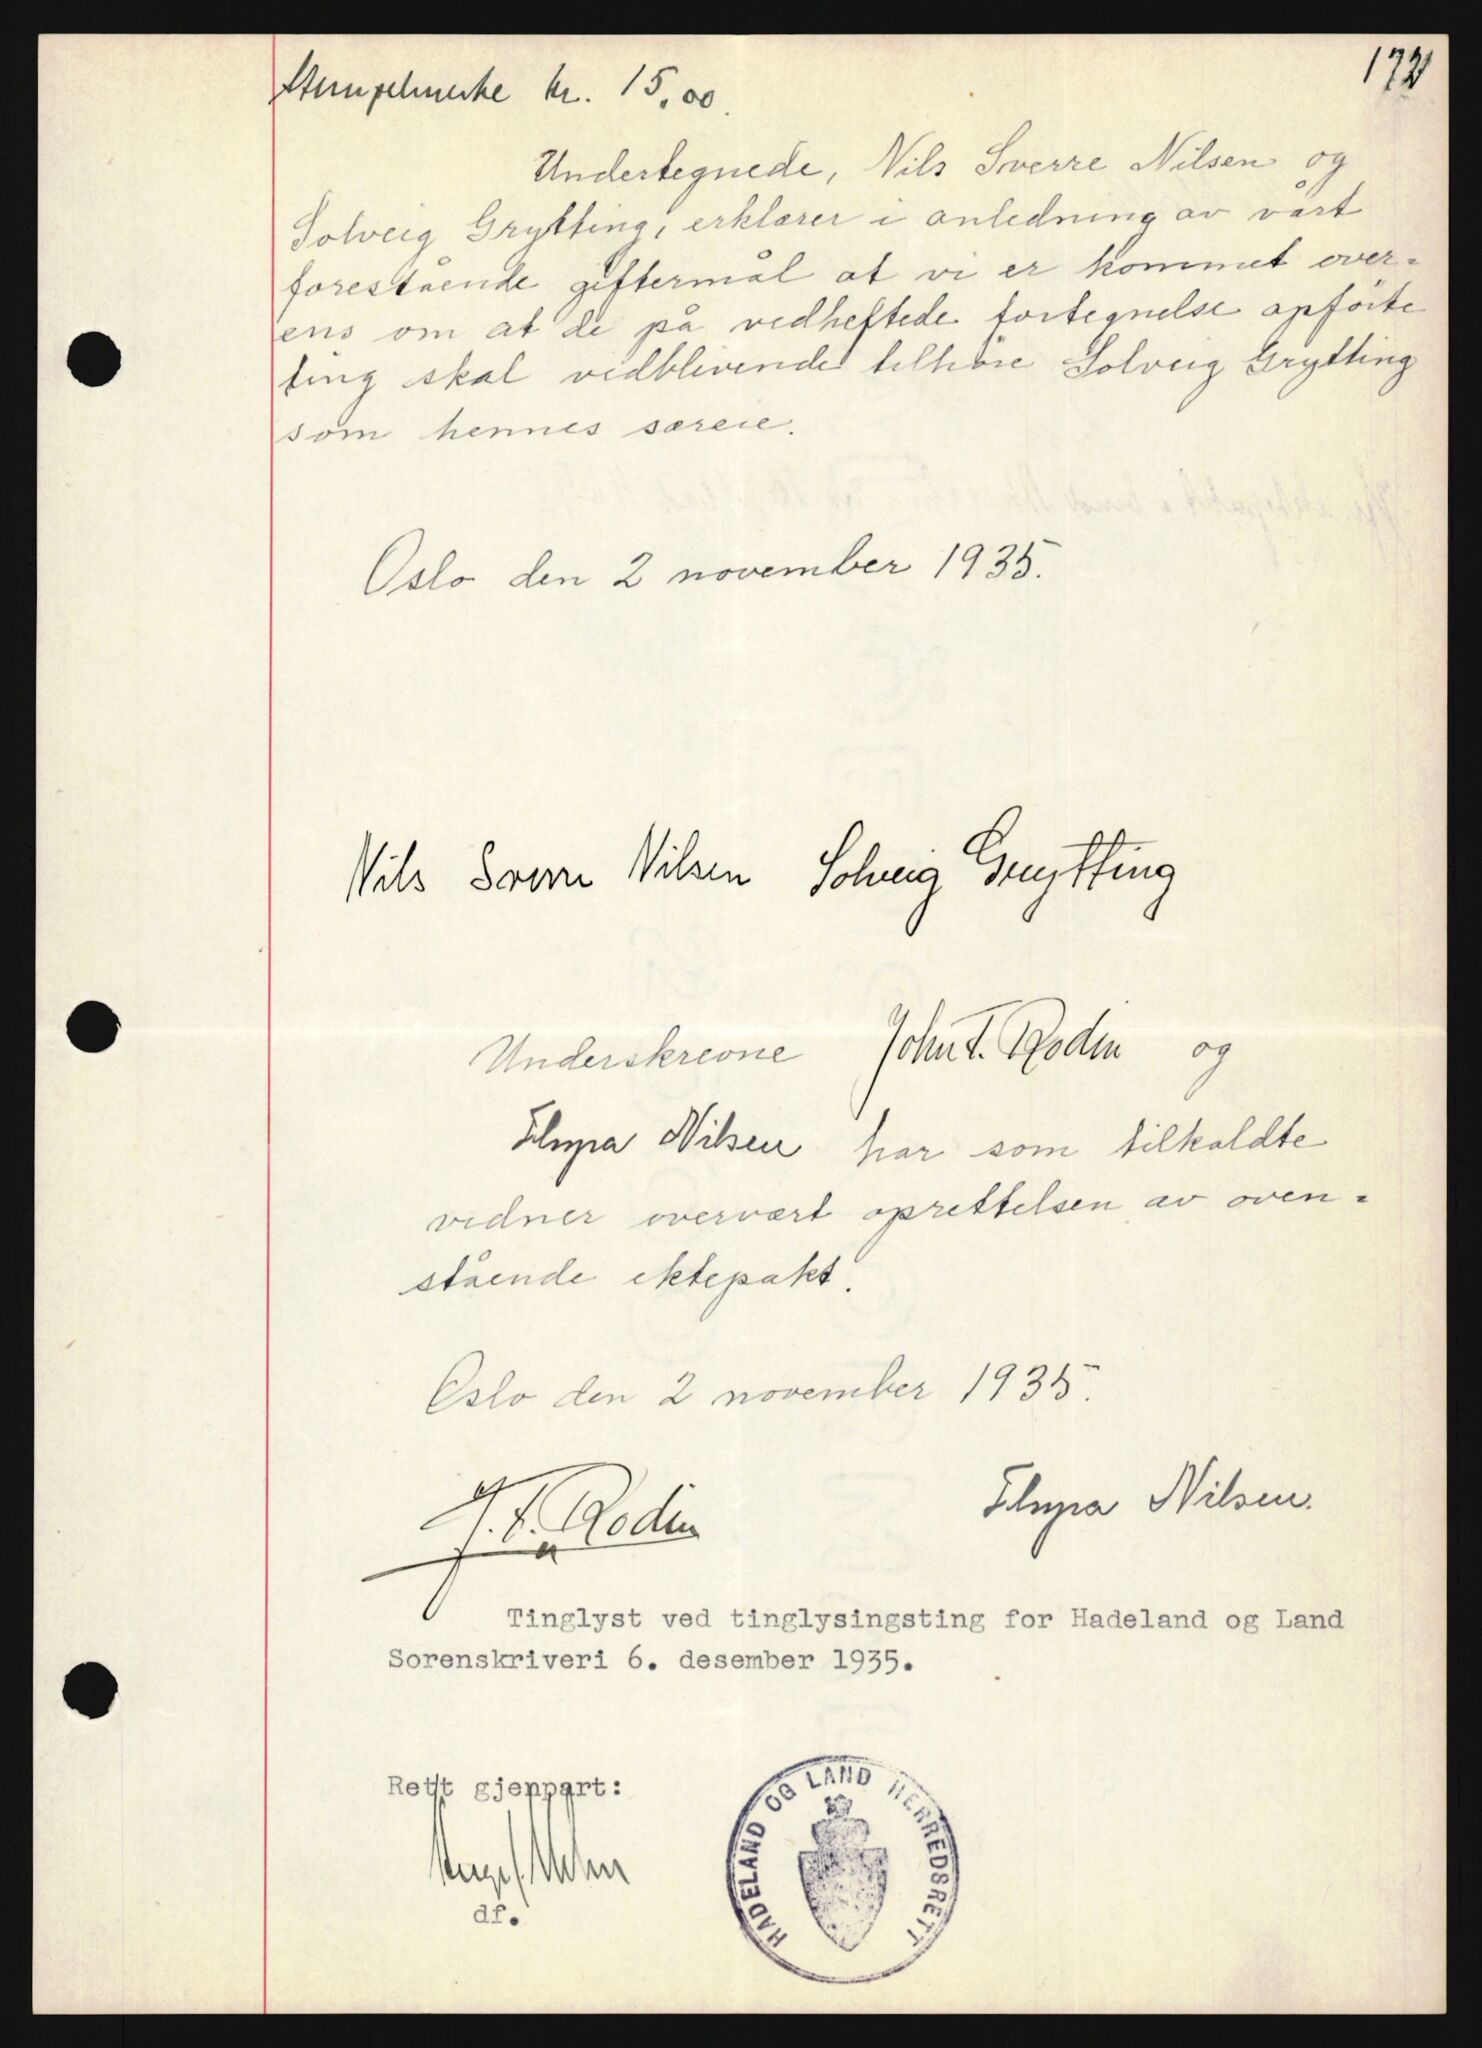 172
Stempelmerke kr. 15,00.
Undertegnede, Nils Sverre Nilsen og
Solveig Grytting, erklærer i anledning av vårt
forestående giftermål at vi er kommet over-
ens om at de på vedheftede fortegnelse opförte
ting skal vedblivende tilhöre Solveig Grytting
som hennes særeie.
Oslo den 2 november 1935.
Nils Sverre Nilsen Solveig Grytting
Underskrevne John F. Rodin og
Nilsen har som tilkaldte
vidner overvært oprettelsen av oven-
stående ektepakt.
Oslo den 2 november 1935.
J. F. Rodin
Nilsen.
Tinglyst ved tinglysingsting for Hadeland og Land
Sorenskriveri 6. desember 1935.
Rett gjenpart:
df.
HADELAND OG LAND HERREDSRETT